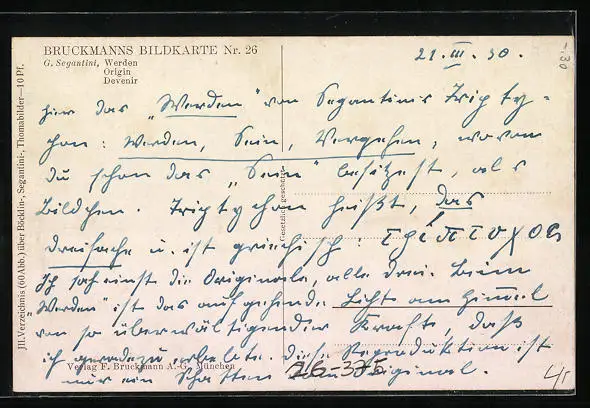 BRUCKMANNS BILDKARTE Nr. 26
G. Segantini, Werden
Origin
Devenir
21. III. 30.
hier das „Werden" von Segantinis Tripty-
chon: Werden, Sein, Vergehen, wovon
du schon das „Sein" besitzest, als
Bildchen. Triptychon heißt, das
dreifache u. ist griechisch: τρίπτυχον
Ich sah einst die Originale, alle drei. Beim
„Werden" ist das aufgehende Licht am Himmel
von so überwältigender Kraft, daß
ich geradezu erbebte. Diese Reproduktion ist
nur ein Schatten vom Original.
Verlag F. Bruckmann A.-G., München
26-375
Gesetzlich geschützt
Jll. Verzeichnis (60 Abb.) über Böcklin-, Segantini-, Thomabilder—10 Pf.
-.30